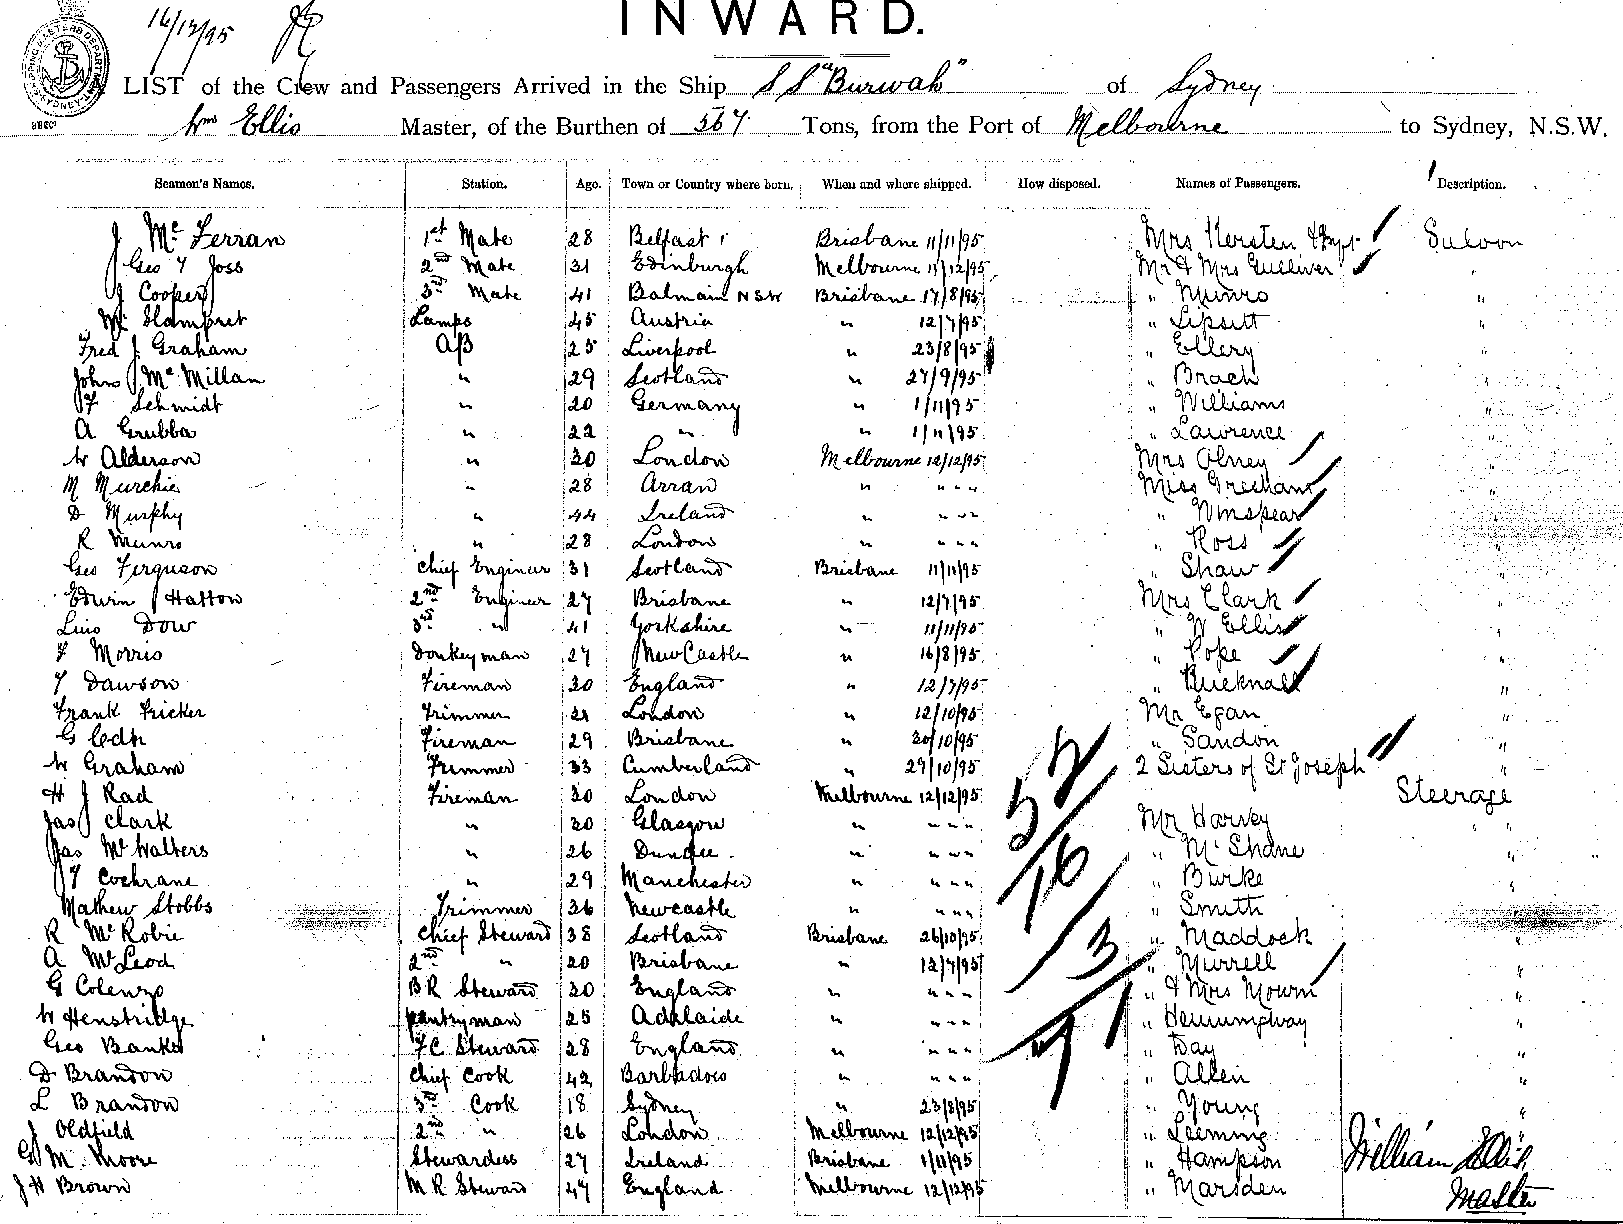 16/12/95
INWARD.
LIST of the Crew and Passengers Arrived in the Ship S S "Burwah" of Sydney
Wm Ellis Master, of the Burthen of 567 Tons, from the Port of Melbourne to Sydney, N.S.W.
Seamen's Names. Station. Age. Town or Country where born. When and where shipped. How disposed. Names of Passengers. Description.
J McFerran 1st Mate 28 Belfast Brisbane 11/11/95 Mrs Kersten Saloon
Geo Y Joss 2nd Mate 31 Edinburgh Melbourne 11/12/95 Mr & Mrs Gulliver "
J Cooper 3rd Mate 41 Balmain NSW Brisbane 17/8/95 " Munro "
Lamps 45 Austria " 12/7/95 " Lipsitt "
Fred J Graham AB 25 Liverpool " 23/8/95 " Ellery "
John J McMillan " 29 Scotland " 27/9/95 " Brach "
F Schmidt " 20 Germany " 1/11/95 " Williams "
A Grubba " 22 " " 1/11/95 " Lawrence "
W Alderson " 30 London Melbourne 12/12/95 Mrs Olney "
M Murchie " 28 Arran " " " " Miss "
D Murphy " 44 Ireland " " " " " Winspear "
R Munro " 28 London " " " " " Ross "
Geo Ferguson Chief Engineer 31 Scotland Brisbane 11/11/95 " Shaw "
Edwin J Hatton 2nd Engineer 27 Brisbane " 12/7/95 Mrs Clark "
Dow 3rd " 41 Yorkshire " 11/11/95 " W Ellis "
F Morris Donkeyman 27 NewCastle " 16/8/95 " Pope "
T Dawson Fireman 30 England " 12/7/95 " Bucknall "
Frank Fricker Trimmer 21 London " 12/10/95 Mr Egan "
G Fireman 29 Brisbane " 20/10/95 " Sandon "
W Graham Trimmer 33 Cumberland " 29/10/95 2 Sisters of St Joseph "
H J Rad Fireman 30 London Melbourne 12/12/95 Steerage
Jas J Clark " 30 Glasgow " " " " Mr Harvey " "
Jas McWalters " 26 Dundee " " " " " McShane "
J T Cochrane " 29 Manchester " " " " " Burke "
Mathew Stobbs Trimmer 36 Newcastle " " " " " Smith "
R McRobie Chief Steward 38 Scotland Brisbane 26/10/95 " Maddock "
A McLeod 2nd " 20 Brisbane " 12/7/95 " Murrell "
G Colenzo BR Steward 30 England " " " " " & Mrs Mourn "
W Henstridge pantryman 25 Adelaide " " " " " Hemmingway "
Geo Banks FC Steward 28 England " " " " " Day "
D Brandon Chief Cook 42 Barbadoes " " " " " Allen "
L Brandon 3rd Cook 18 Sydney " 23/8/95 " Young "
J Oldfield 2nd " 26 London Melbourne 12/12/95 " Leeming
M Moore Stewardess 27 Ireland Brisbane 1/11/95 " Hampson William Ellis
J H Brown MR Steward 47 England Melbourne 12/12/95 " Marsden Master
52
16
3
71